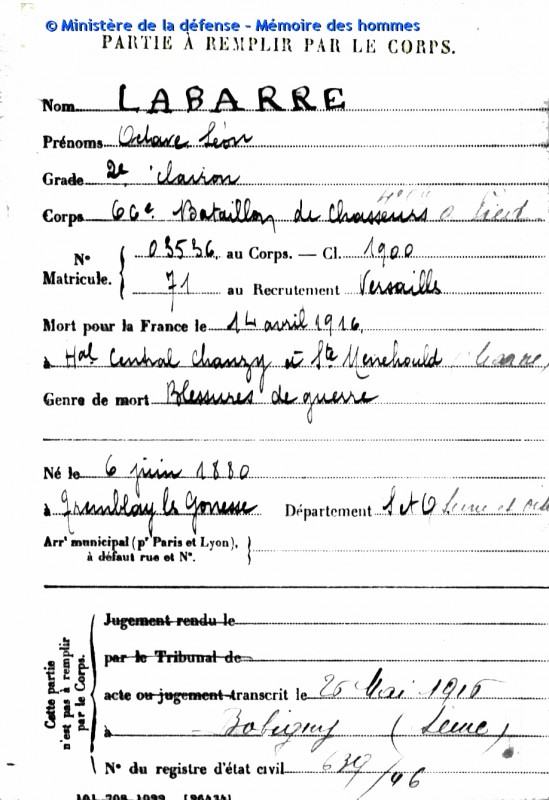 © Ministère de la défense - Mémoire des hommes
PARTIE À REMPLIR PAR LE CORPS.
Nom LABARRE
Prénoms Octave Léon
Grade 2e Clairon
Corps 66e Bataillon de Chasseurs à Pied
N° Matricule. { 03536 au Corps. — Cl. 1900
71 au Recrutement Versailles
Mort pour la France le 14 avril 1916
à Hal Central Chanzy à Ste Menehould (Marne)
Genre de mort Blessures de guerre
Né le 6 juin 1880
à Tremblay les Gonesse Département S et O Seine et Oise
Arrt municipal (pr Paris et Lyon),
à défaut rue et N°.
Cette partie n'est pas à remplir par le Corps.
Jugement rendu le
par le Tribunal de
acte ou jugement transcrit le 26 Mai 1916
à Bobigny (Seine)
N° du registre d'état civil 639/46